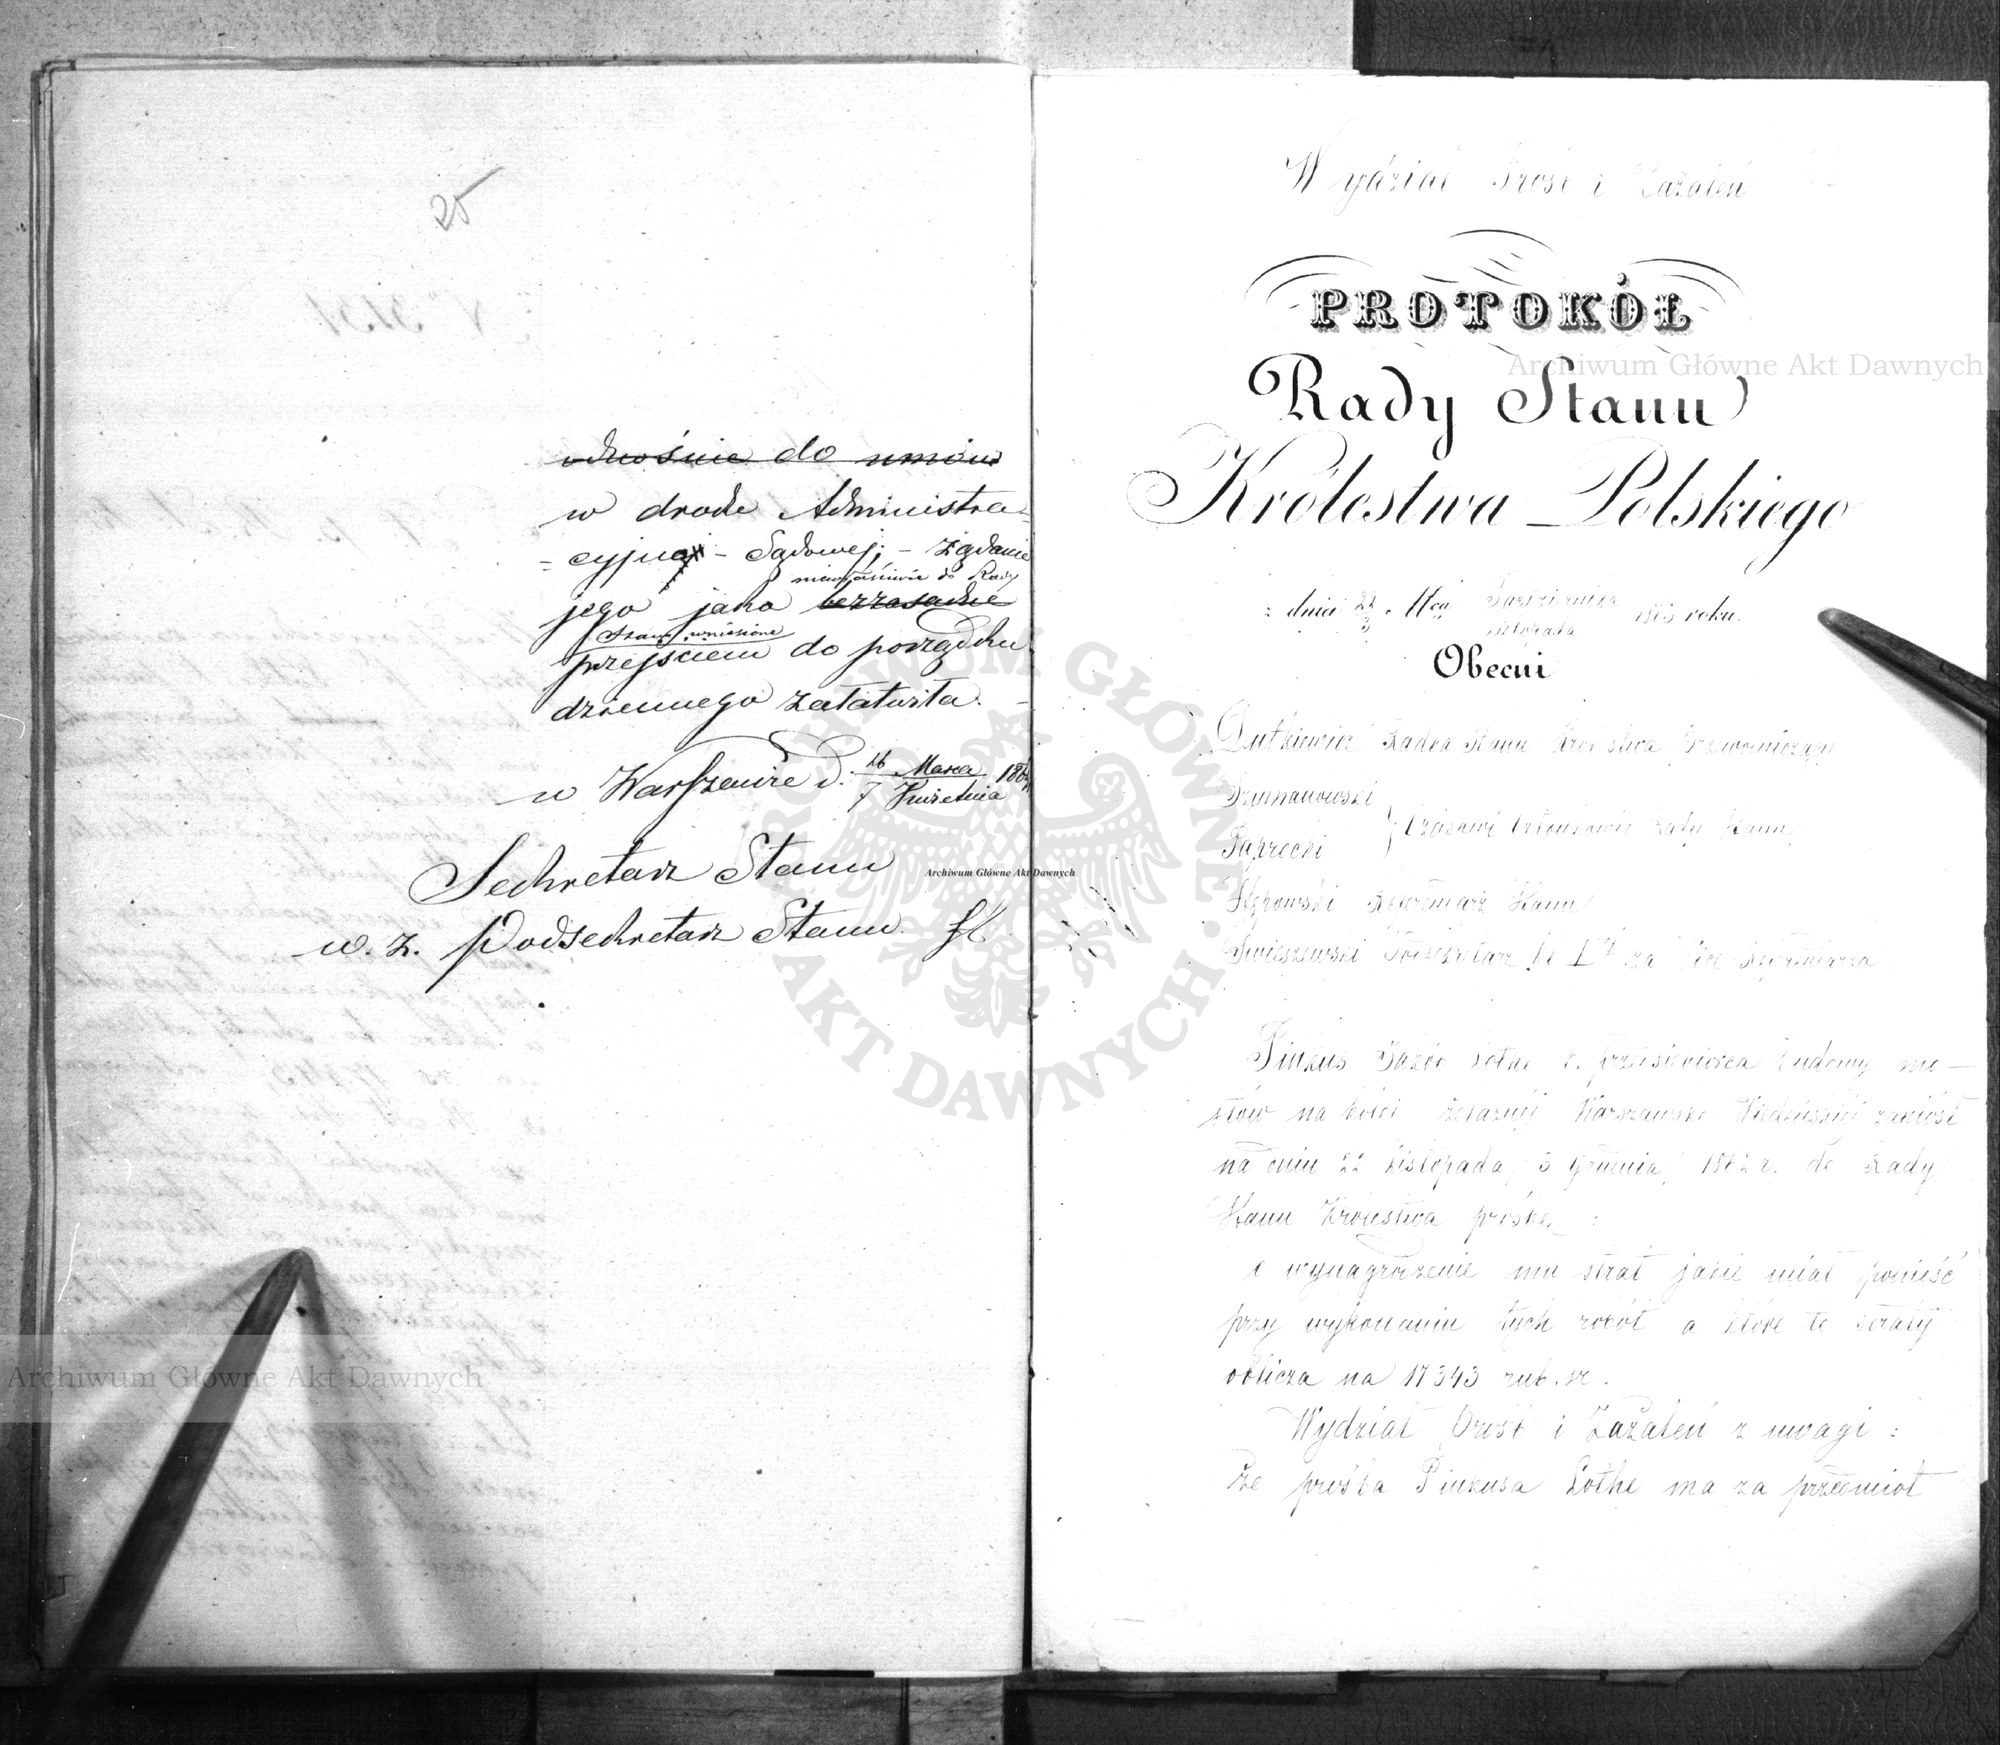 25
odnośnie do umów
w drodze Administra-
=cyjnej - Sądowej; - żądanie
niewłaściwie do Rady
jego jako bezzasadne
Stanu wniesione
przejściem do porządku
dziennego załatwiła. -
w Warszawie d. 26 Marca 186
7 Kwietnia
Sekretarz Stanu
w. z. Podsekretarz Stanu.
Wydział Próśb i Zażaleń
PROTOKÓŁ
Rady Stanu
Królestwa Polskiego
z dnia 22 Mca Października 1863 roku.
3 Listopada
Obecni
Dutkiewicz Radca Stanu Królestwa Przewodniczący
Szymanowski
Czasowi Członkowie Rady Stanu
Paprocki
Stępowski Referendarz Stanu
Świeszewski Podsekretarz Kl. I za Referendarza
Pinkus Jakób Lothe b. przedsiębiorca budowy mo-
stów na kolei żelaznej Warszawsko Wiedeńskiej zaniósł
na dniu 22 Listopada / 3 Grudnia / 1862 r. do Rady
Stanu Królestwa prośbę:
o wynagrodzenie mu strat jakie miał ponieść
przy wykonaniu tych robót a które to straty
oblicza na 17343 rub. sr.
Wydział Próśb i Zażaleń z uwagi:
Że prośba Pinkusa Lothe ma za przedmiot
Archiwum Główne Akt Dawnych
Archiwum Główne Akt Dawnych
Archiwum Główne Akt Dawnych
ARCHIWUM GŁÓWNE AKT DAWNYCH